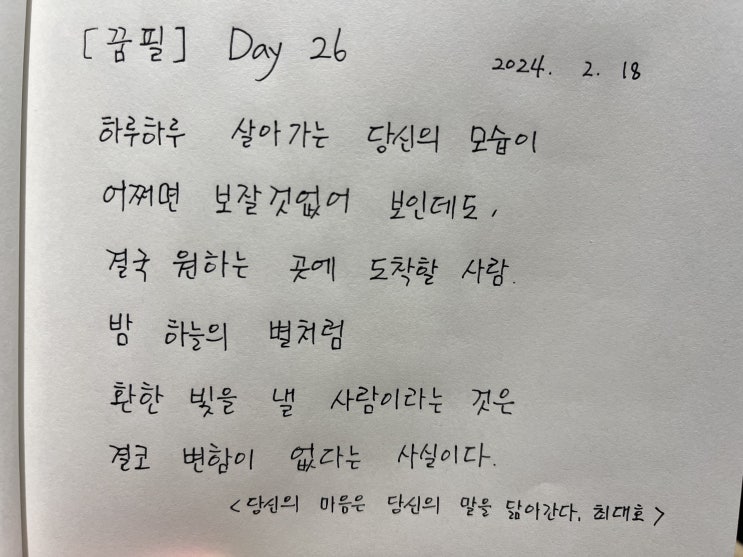 [꿈필] Day 26
2024. 2. 18
하루하루 살아가는 당신의 모습이
어쩌면 보잘것없어 보인데도,
결국 원하는 곳에 도착할 사람.
밤 하늘의 별처럼
환한 빛을 낼 사람이라는 것은
결코 변함이 없다는 사실이다.
<당신의 마음은 당신의 말을 닮아간다, 최대호>